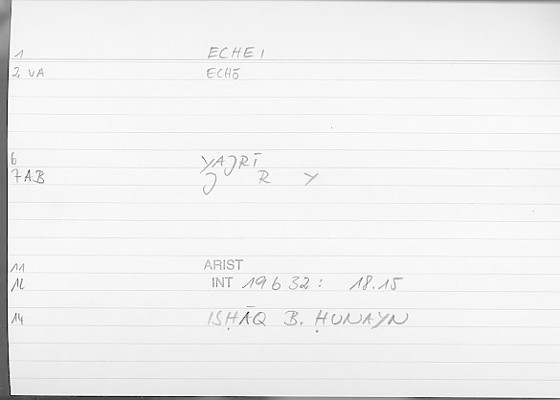 1 ECHEI
2, VA ECHŌ
6 YAJRĪ
7AB J R Y
11 ARIST
12 INT 19b32: 18.15
14 ISḤĀQ B. ḤUNAYN